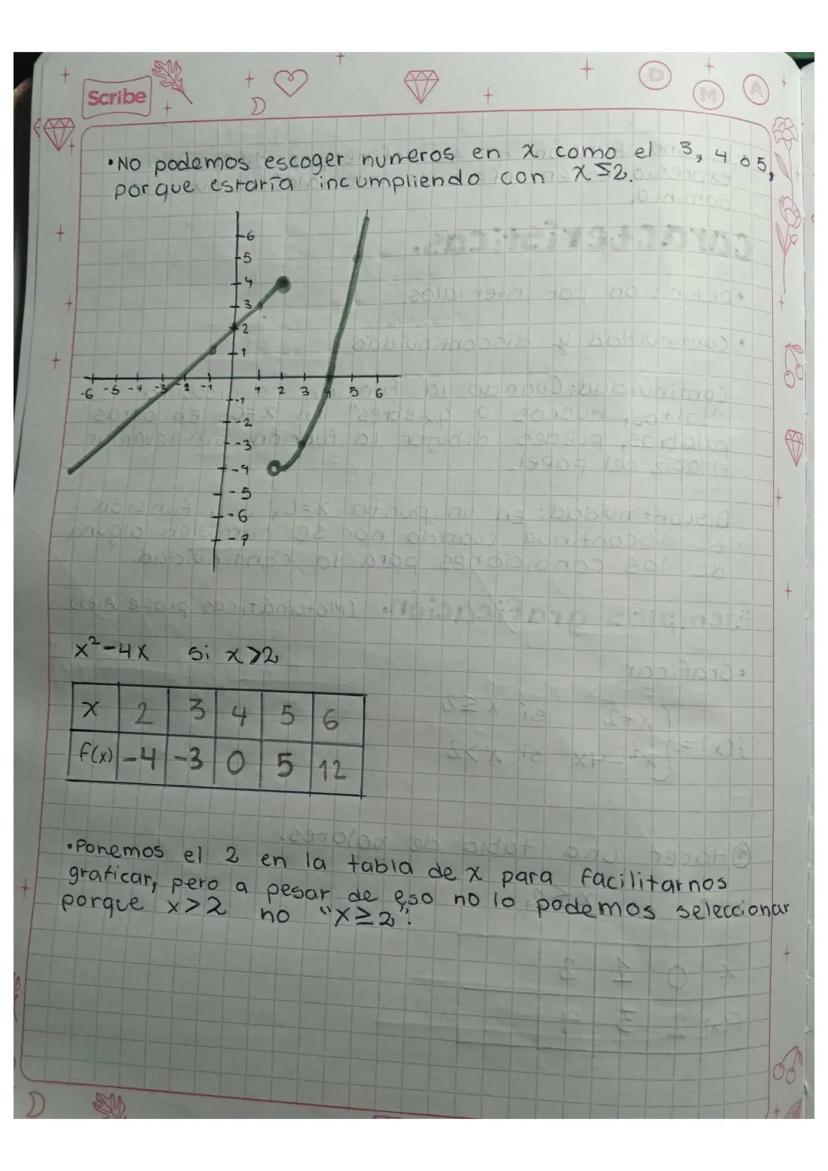 Scribe
D
M
A
•No podemos escoger numeros en x como el 3, 4 o 5,
porque estaría incumpliendo con x≤2.
6
5
4
3
2
1
-6 -5 -4 -3 -2 -1 1 2 3 4 5 6
-1
-2
-3
-4
-5
-6
-7
x²-4x si x>2
x 2 3 4 5 6
f(x) -4 -3 0 5 12
•Ponemos el 2 en la tabla de x para facilitarnos
graficar, pero a pesar de eso no lo podemos seleccionar
porque x>2 no "x≥2".